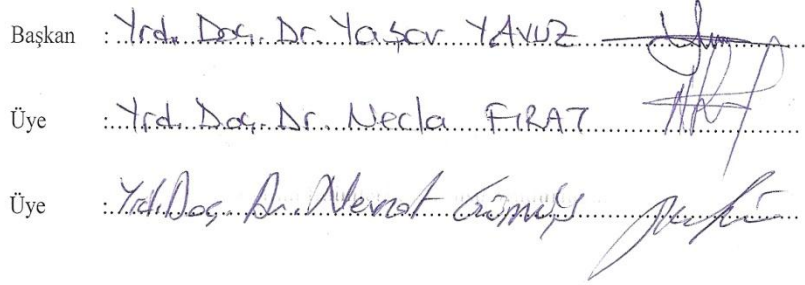 Başkan : Yrd. Doç. Dr. Yaşar YAVUZ
Üye : Yrd. Doç. Dr. Necla FIRAT
Üye : Yrd. Doç. Dr. Nevzat Gümüş